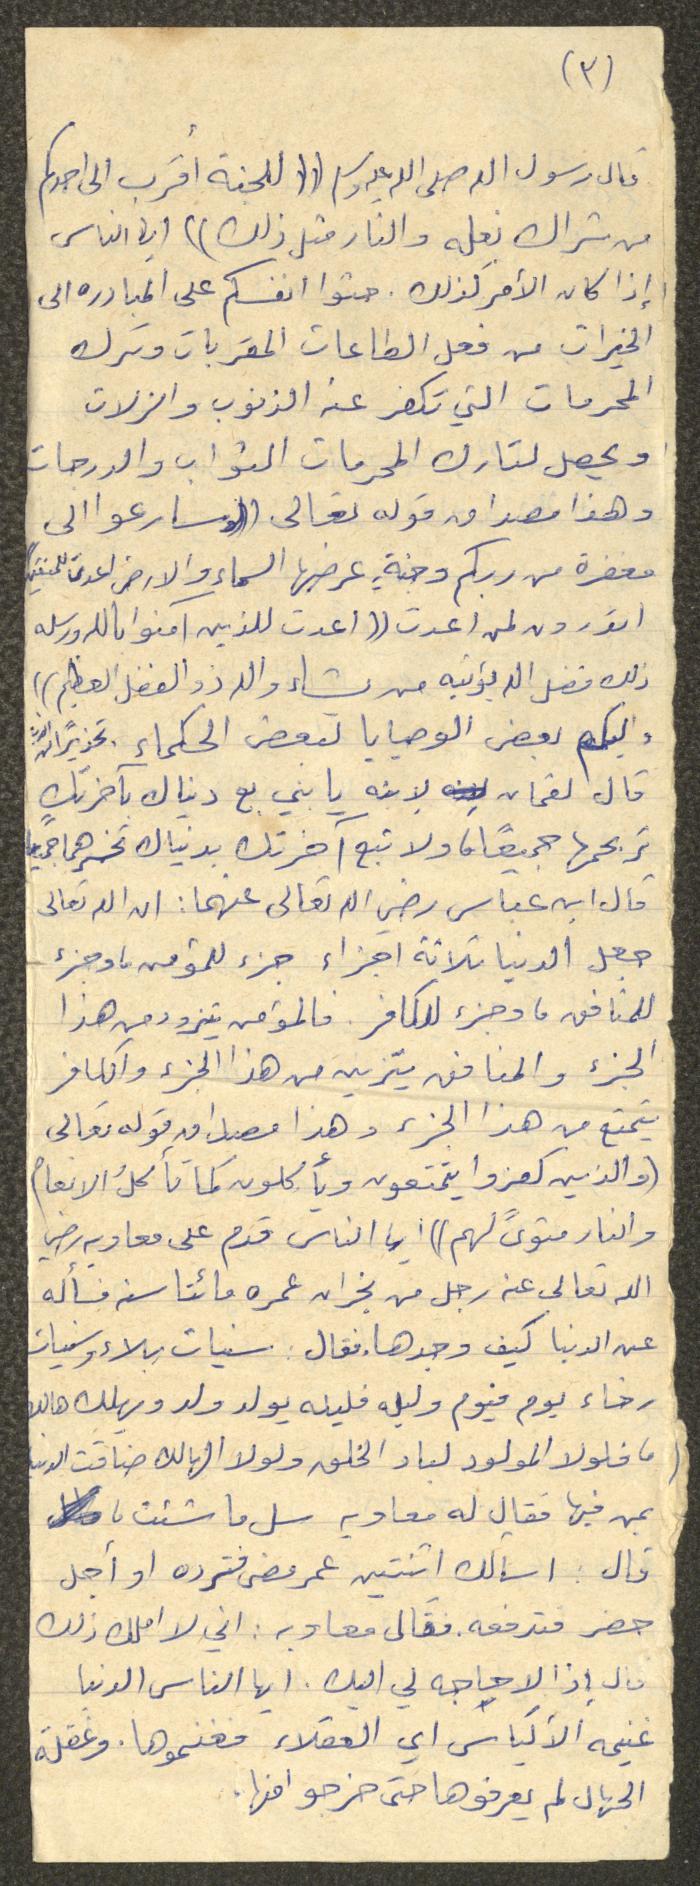 (٣)
قال رسول الله صلى الله عليه وسلم ((للجنة أقرب الى احدكم
من شراك نعله والنار مثل ذلك)) ايها الناس
إذا كان الأمر كذلك. حثوا انفسكم على المبادره الى
الخيرات من فعل الطاعات المقربات وترك
المحرمات التي تكفر عنه الذنوب والزلات
ويحصل لتارك المحرمات الثواب والدرجات
وهذا مصداق قوله تعالى ((وسارعوا الى
مغفرة من ربكم وجنةٍ عرضها السماء والارض اعدت للمتقين
اتدرون لمن اعدت ((اعدت للذين آمنوا بالله ورسله
ذلك فضل الله يؤتيه من يشاء والله ذو الفضل العظيم))
واليكم بعض الوصايا لبعض الحكماء. تحذيرًا من
قال لقمان لابنه يا بني بع دنياك بآخرتك
تربحهما جميعًا، ولا تبع آخرتك بدنياك تخسرهما جميعا
قال ابن عباس رضي الله تعالى عنهما: ان الله تعالى
جعل الدنيا ثلاثة اجزاء جزء للمؤمن، وجزء
للمنافق، وجزء للكافر. فالمؤمن يتزود من هذا
الجزء والمنافق يتزين من هذا الجزء والكافر
يتمتع من هذا الجزء وهذا مصداق قوله تعالى
(والذين كفروا يتمتعون ويأكلون كما تأكلُ الانعام
والنار مثوىً لهم)) ايها الناس قدم على معاويه رضي
الله تعالى عنه رجل من نجران عمره مائتا سنه فسأله
عن الدنيا كيف وجدها، فقال: سنيات بلاء وسنيات
رخاء يوم فيوم وليله فليله يولد ولد ويهلك هالك
، فلولا المولود لباد الخلق ولولا الهالك ضاقت الدنيا
بمن فيها فقال له معاويه سل ما شئت،
قال: اسالك اثنتين عمر مضى فترده او أجل
حضر فتدفعه. فقال معاويه: اني لا املك ذلك
قال إذا لا حاجه لي اليك. ايها الناس الدنيا
غنيمة الأكياس اي العقلاء فغنموها. وغفلة
الجهال لم يعرفوها حتى خرجوا منها.